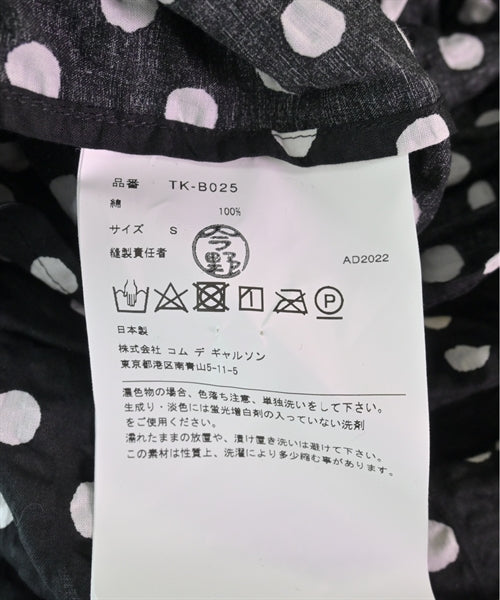 品番 TK-B025
綿 100%
サイズ S
今野
縫製責任者 AD2022
日本製
株式会社 コム デ ギャルソン
東京都港区南青山5-11-5
濃色物の場合、色落ち注意、単独洗いをして下さい。
生成り・淡色には蛍光増白剤の入っていない洗剤
をご使用ください。
濡れたままの放置や、漬け置き洗いは避けて下さい。
この素材は性質上、洗濯により多少縮む事があります。